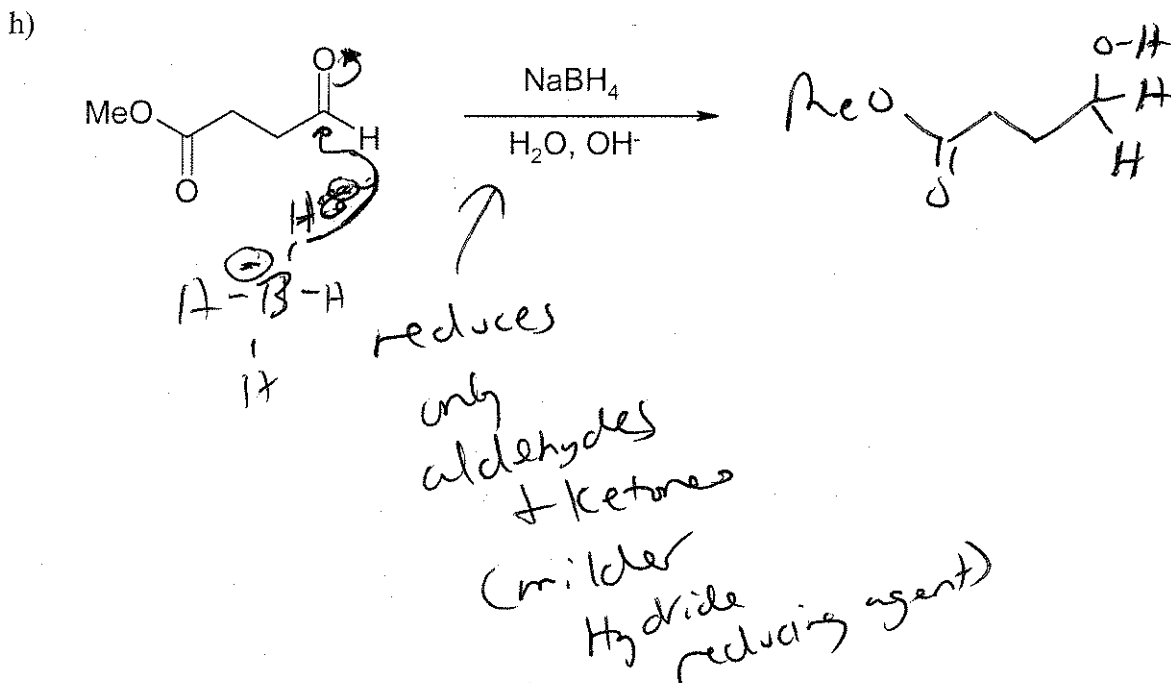 h)
O
NaBH4
MeO
H
H2O, OH-
O
O-H
MeO
H
H
O
H
H-B-H
H
reduces
only
aldehydes
+ ketones
(milder
Hydride
reducing agent)